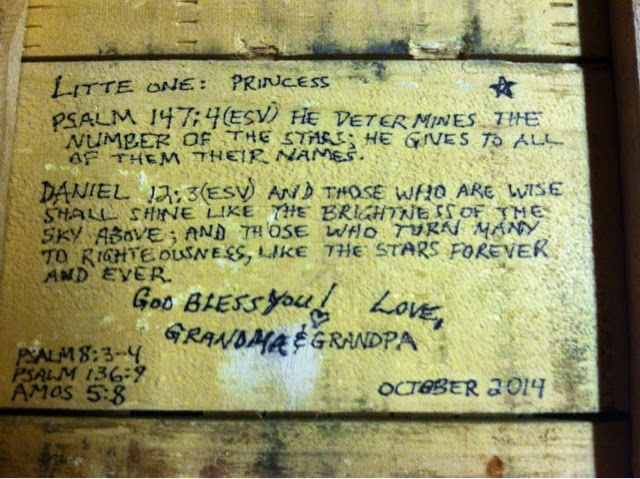 LITTE ONE: PRINCESS ☆
PSALM 147:4 (ESV) HE DETERMINES THE
NUMBER OF THE STARS; HE GIVES TO ALL
OF THEM THEIR NAMES.
DANIEL 12:3 (ESV) AND THOSE WHO ARE WISE
SHALL SHINE LIKE THE BRIGHTNESS OF THE
SKY ABOVE; AND THOSE WHO TURN MANY
TO RIGHTEOUSNESS, LIKE THE STARS FOREVER
AND EVER.
GOD BLESS YOU! LOVE,
GRANDMA & GRANDPA
PSALM 8:3-4
PSALM 136:9
AMOS 5:8
OCTOBER 2014